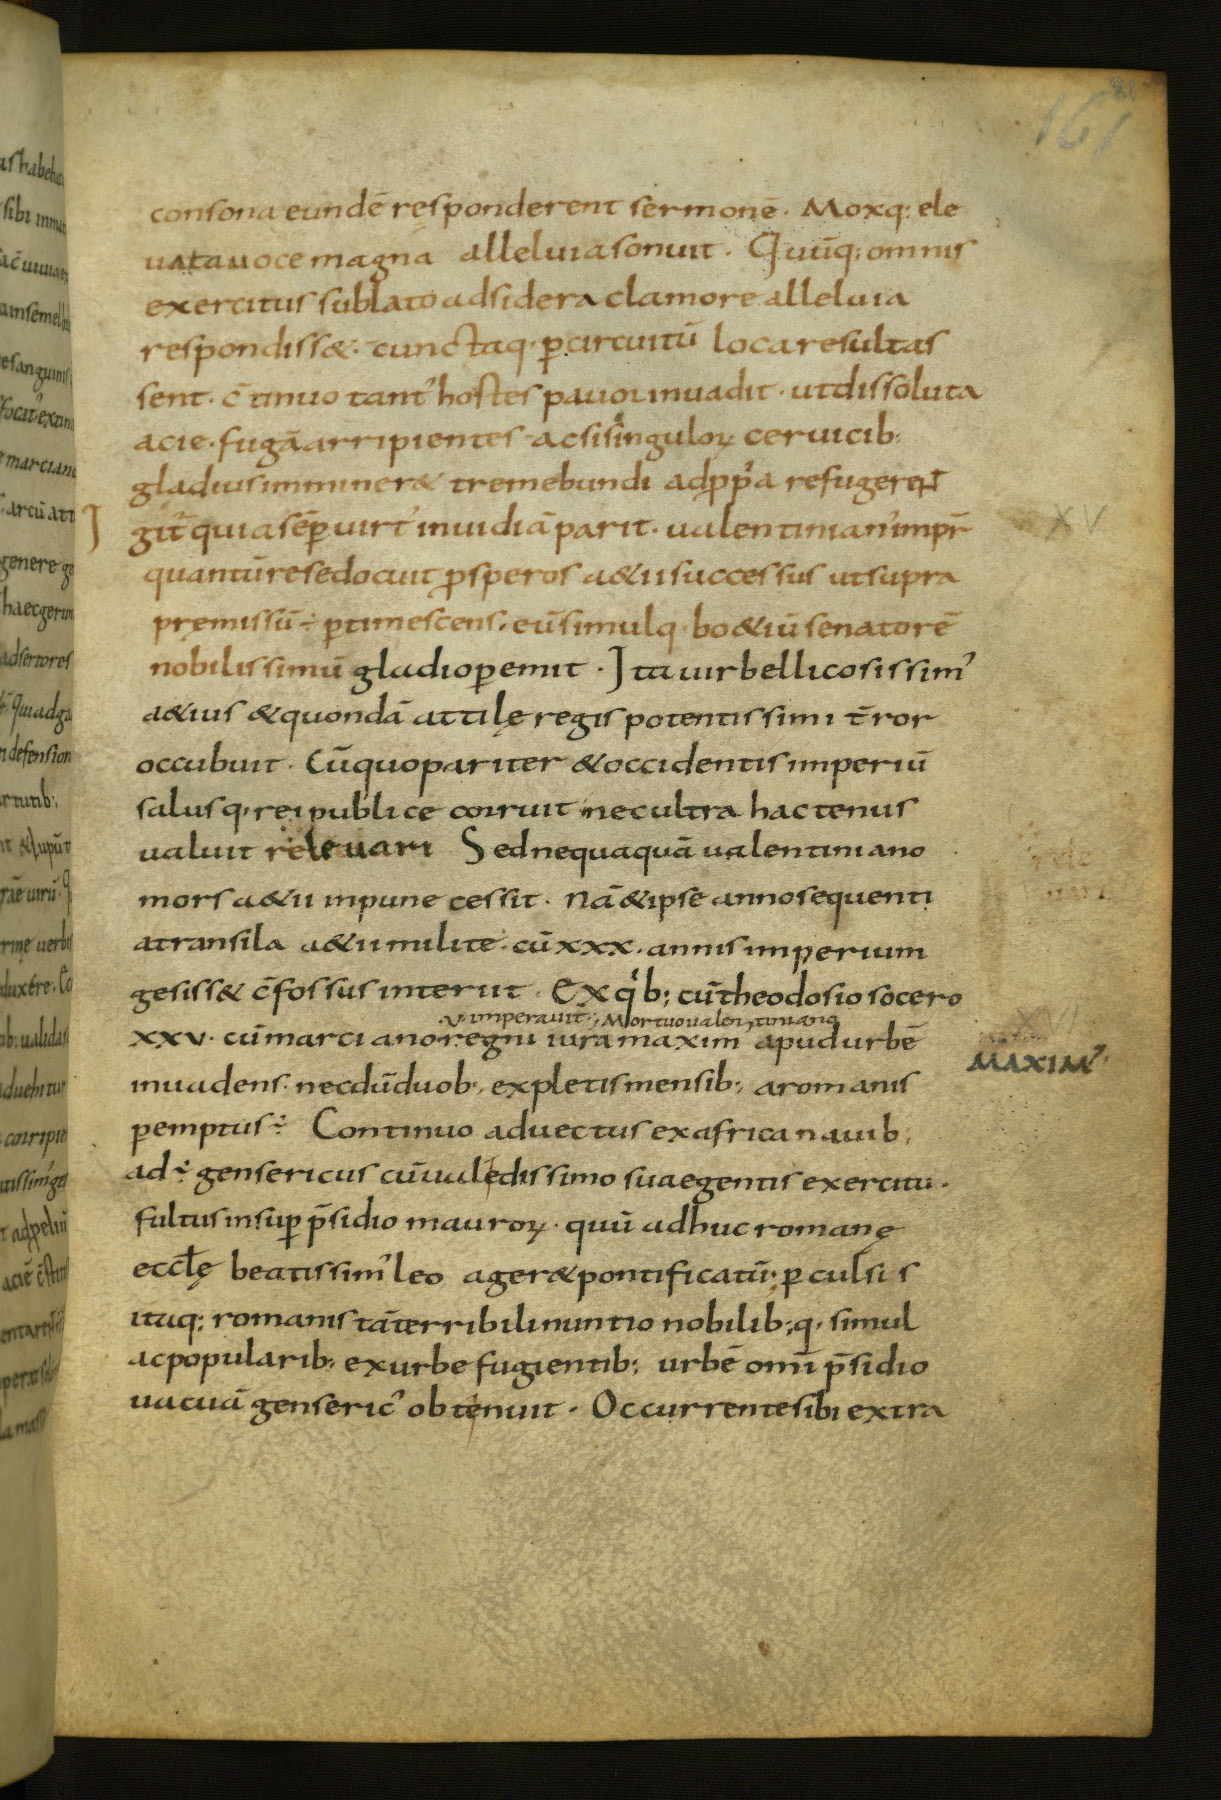 161
consona eundē responderent sermonē · Moxq; ele
uata uoce magna alleluia sonuit · Quūq; omnis
exercitus sublato ad sidera clamore alleluia
respondiss& · cunctaq · p̄ circuitū loca resultas
sent · c̄tinuo tant' hostes pauor inuadit · ut dissoluta
acie · fugā arripientes ac si singuloꝝ ceruicib;
gladius imminer& tremebundi ad ꝓp'a refugerent
Igit̄ quia sēp uirt' inuidiā parit · ualentinian' impr̄
quantū rese docuit ꝓsperos a&ii successus ut supra
pręmissū ÷ p̄timescens · eū simulq · bo&iū senatorē
nobilissimū gladio p̄emit · Ita uir bellicosissim'
a&ius & quondā attilę regis potentissimi t̄ror
occubuit · Cū quo pariter & occidentis imperiū
salusq · rei publice corruit nec ultra hactenus
ualuit releuari Sed nequaquā ualentiniano
mors a&ii inpune cessit · Nā & ipse anno sequenti
a transila a&ii milite · cū xxx · annis imperium
gesiss& c̄fossus interiit · Ex q'b; cū theodosio socero
·v· imperauit; Mortuo ualentiniano
xxv · cū marciano regni iura maxim' apud urbē
MAXIM'
inuadens · necdū duob; expletis mensib; a romanis
p̄emptus ÷ Continuo aduectus ex africa nauib;
ad ÷ gensericus cū ualedissimo suae gentis exercitu ·
fultus insup p̄sidio mauroꝝ · quū adhuc romanę
eccl̄ę beatissim' leo ager& pontificatū; p̄culsis
itaq; romanis tā terribili nuntio nobilib;q · simul
ac popularib; ex urbe fugientib; urbē omī p̄sidio
uacuā genseric' obtenuit · Occurrente sibi extra
XV